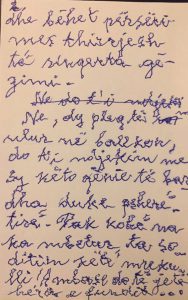 dhe bëhet përsëri
mes thirrjesh
të singerta gë-
zimi.
Ne do t'i ndjekim
Ne, dy pleq të
ulur në ballkon,
do t'i ndjekim me
sy këto qenie të bar
dha duke psherë-
tirë. Pak kohë na
ka mbetur, ta so-
ditim këtë mreku-
lli! Ambasë do të jetë
hera e fundit